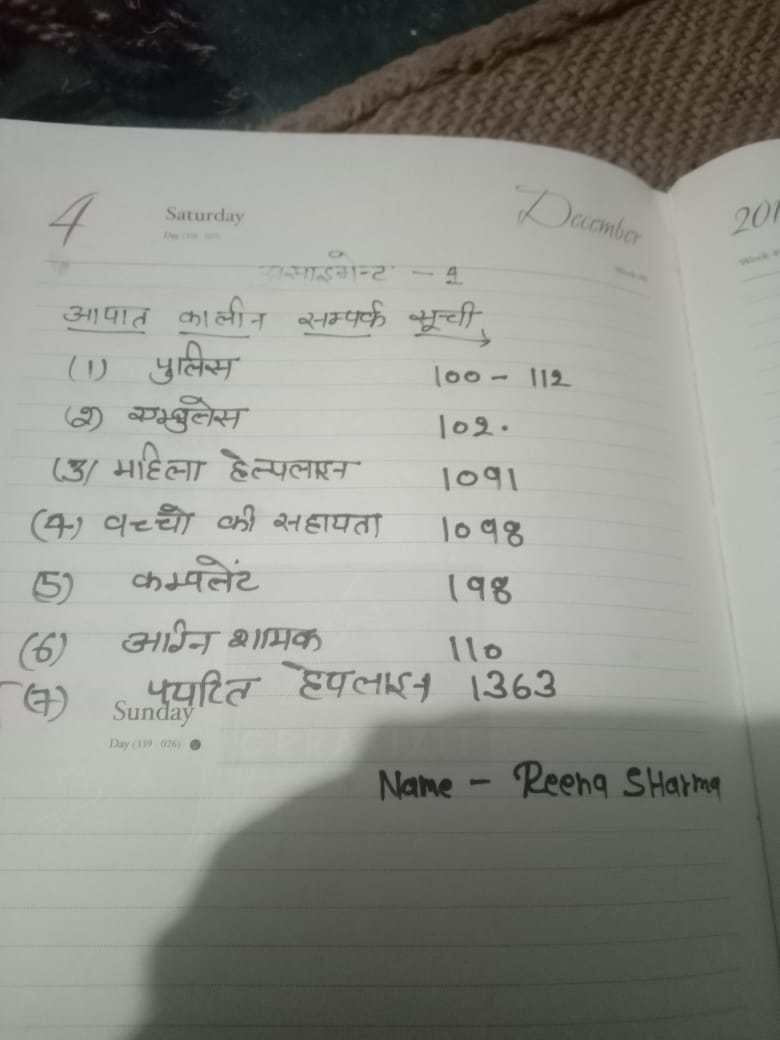 4 Saturday December 201
असाइमेन्ट - 1
आपात कालीन सम्पर्क सूची
(1) पुलिस 100 - 112
(2) एम्बुलेस 102.
(3) महिला हेल्पलाइन 1091
(4) बच्चो की सहायता 1098
(5) कम्पलेंट 198
(6) अग्नि शामक 110
(7) पर्यटित हेपलाइन 1363
Sunday
Day (339 - 026)
Name - Reena SHarma